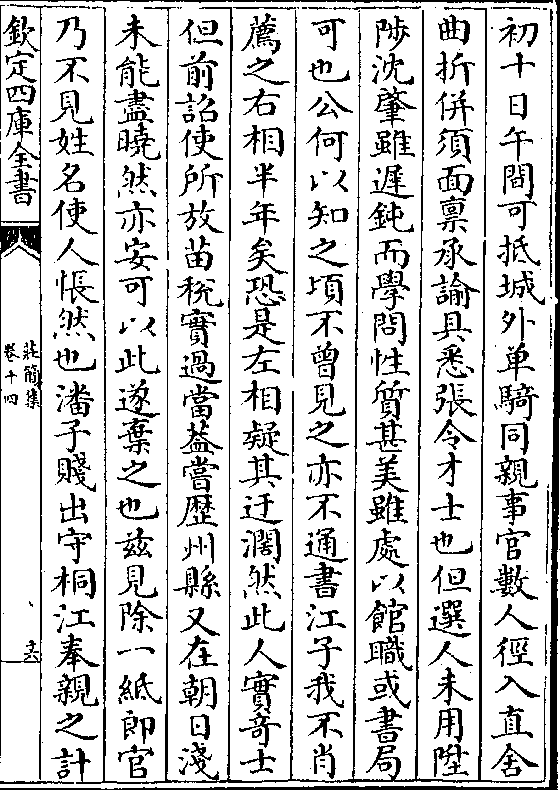 初十日午間可抵城外单騎同親事官數人徑入直舍
曲折併須面禀承諭具悉張令才士也但選人未用陞
陟沈肇雖遲鈍而學問性質甚美雖處以館職或書局
可也公何以知之頃不曾見之亦不通書江子我不肖
薦之右相半年矣恐是左相疑其迂濶然此人實竒士
但前詔使所放苗稅實過當葢嘗歴州縣又在朝日淺
未能盡曉然亦安可以此遂棄之也兹見除一紙郎官
乃不見姓名使人悵然也潘子賤出守桐江奉親之計
欽定四庫全書
莊簡集
卷十四